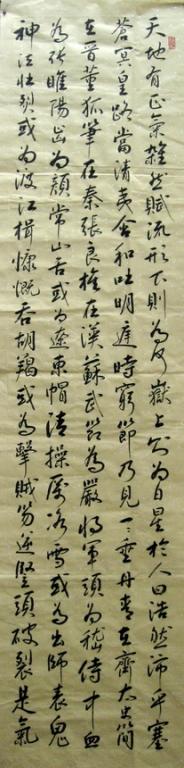 天地有正氣雜然賦流形下則為河嶽上則為日星於人曰浩然沛乎塞
蒼冥皇路當清夷含和吐明庭時窮節乃見一一垂丹青在齊太史簡
在晉董狐筆在秦張良椎在漢蘇武節為嚴將軍頭為嵇侍中血
為張睢陽齒為顏常山舌或為遼東帽清操厲冰雪或為出師表鬼
神泣壯烈或為渡江楫慷慨吞胡羯或為擊賊笏逆豎頭破裂是氣